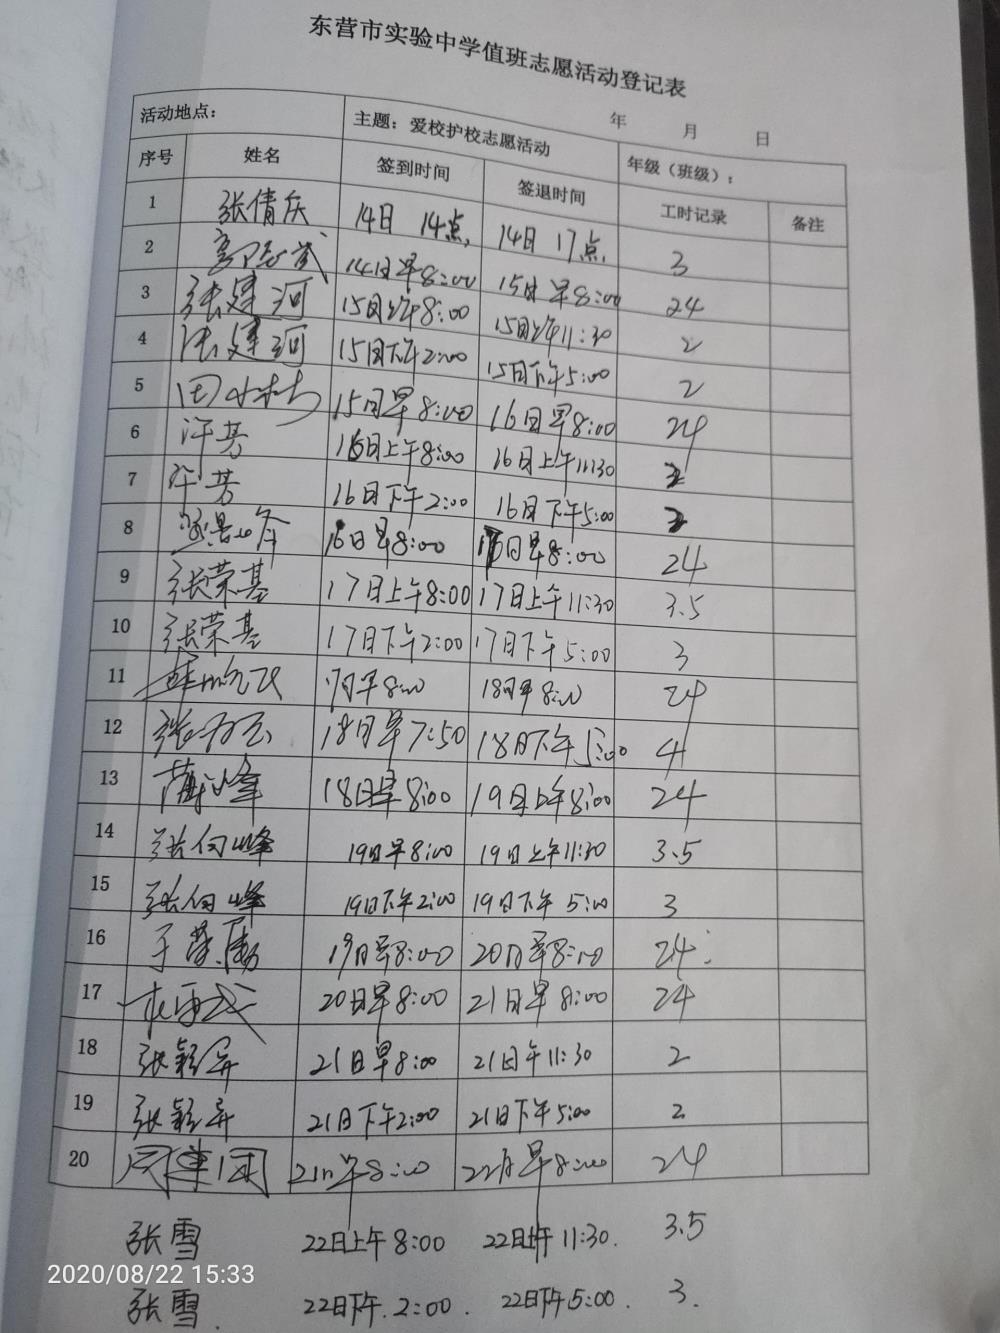 东营市实验中学值班志愿活动登记表
年 月 日
活动地点： 主题：爱校护校志愿活动 年级（班级）：
序号 姓名 签到时间 签退时间 工时记录 备注
1 张倩庆 14日 14点, 14日 17点, 3
2 14日早8:00 15日早8:00 24
3 张建河 15日上午8:00 15日上午11:30 2
4 张建河 15日下午2:00 15日下午5:00 2
5 田 15日早8:00 16日早8:00 24
6 许芳 16日上午8:00 16日上午11:30 2
7 许芳 16日下午2:00 16日下午5:00 2
8 16日早8:00 日早8:00 24
9 张荣基 17日上午8:00 17日上午11:30 3.5
10 张荣基 17日下午2:00 17日下午5:00 3
11 17日早8:00 18日早8:00 24
12 张 18日早7:50 18日下午5:00 4
13 峰 18日早8:00 19日上午8:00 24
14 张向峰 19日早8:00 19日上午11:30 3.5
15 张向峰 19日下午2:00 19日下午5:00 3
16 于 19日早8:00 20日早8:00 24
17 20日早8:00 21日早8:00 24
18 张颖异 21日早8:00 21日午11:30 2
19 张颖异 21日下午2:00 21日下午5:00 2
20 周建国 21日早8:00 22日早8:00 24
张雪 22日上午8:00 22日上午11:30. 3.5
2020/08/22 15:33
张雪. 22日下午.2:00. 22日下午5:00. 3.